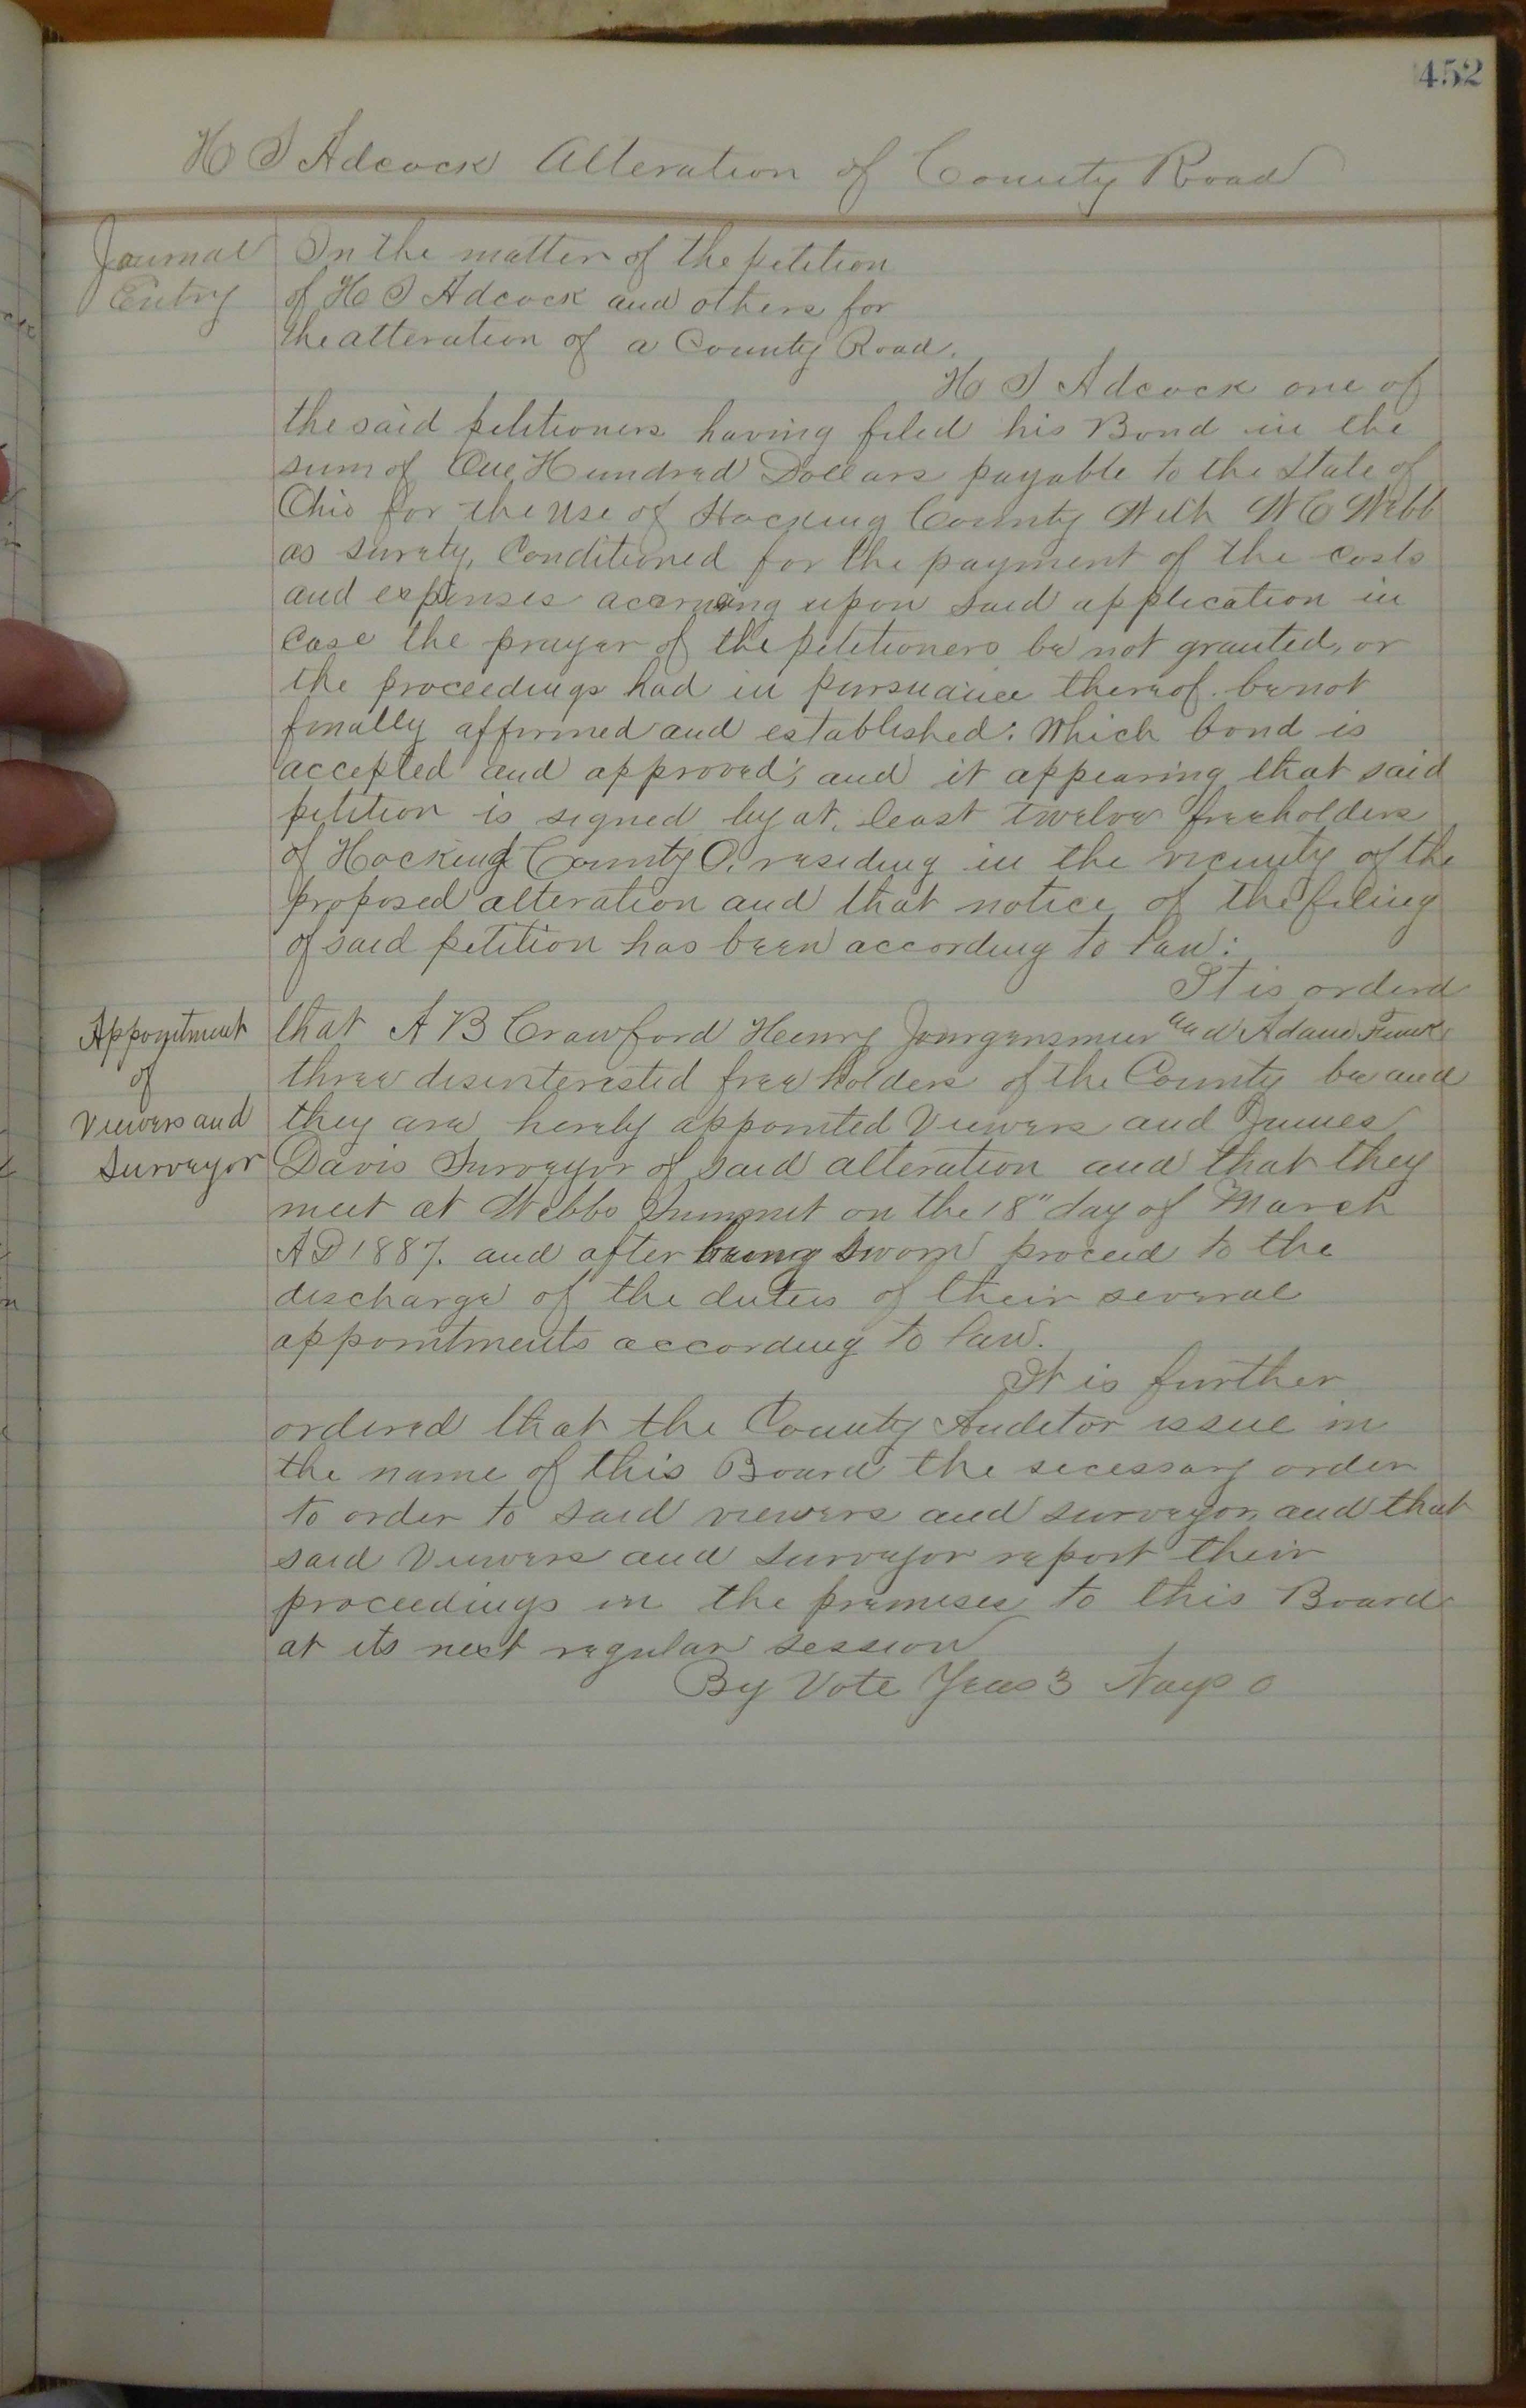 452
H S Adcock Alteration of County Road
Journal
Entry
In the matter of the petition
of H S Adcock and others for
the alteration of a County Road.
H S Adcock one of
the said petitioners having filed his Bond in the
sum of One Hundred Dollars payable to the State of
Ohio for the use of Hocking County With W C Webb
as surety, Conditioned for the payment of the costs
and expenses accruing upon said application in
Case the prayer of the petitioners be not granted, or
the proceedings had in pursuance thereof be not
finally affirmed and established: Which bond is
accepted and approved; and it appearing that said
petition is signed by at least twelve freeholders
of Hocking County O. residing in the vicinity of the
proposed alteration and that notice of the filing
of said petition has been according to law:
It is orderd
Appointment
of
Viewers and
Surveyor
that A B Crawford Henry and Adam Funk
three disinterested free holders of the County be and
they are hereby appointed Viewers and James
Davis Surveyor of said alteration and that they
meet at Webbs Summit on the 18" day of March
A D 1887. and after being sworn proceed to the
discharge of the duties of their several
appointments according to law.
It is further
ordered that the County Auditor issue in
the name of this Board the secessary order
to order to said viewers and surveyor, and that
said Viewers and Surveyor report their
proceedings in the premises to this Board
at its next regular session
By Vote Yeas 3 Nays 0